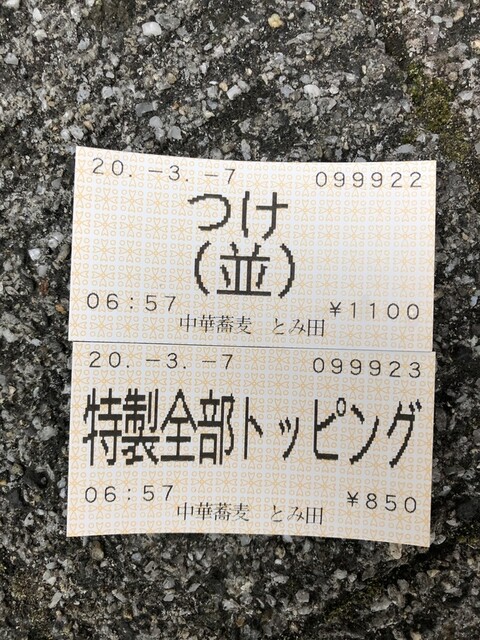 20. -3. -7 099922
つけ
(並)
06:57 ¥1100
中華蕎麦 とみ田
20. -3. -7 099923
特製全部トッピング
06:57 ¥850
中華蕎麦 とみ田